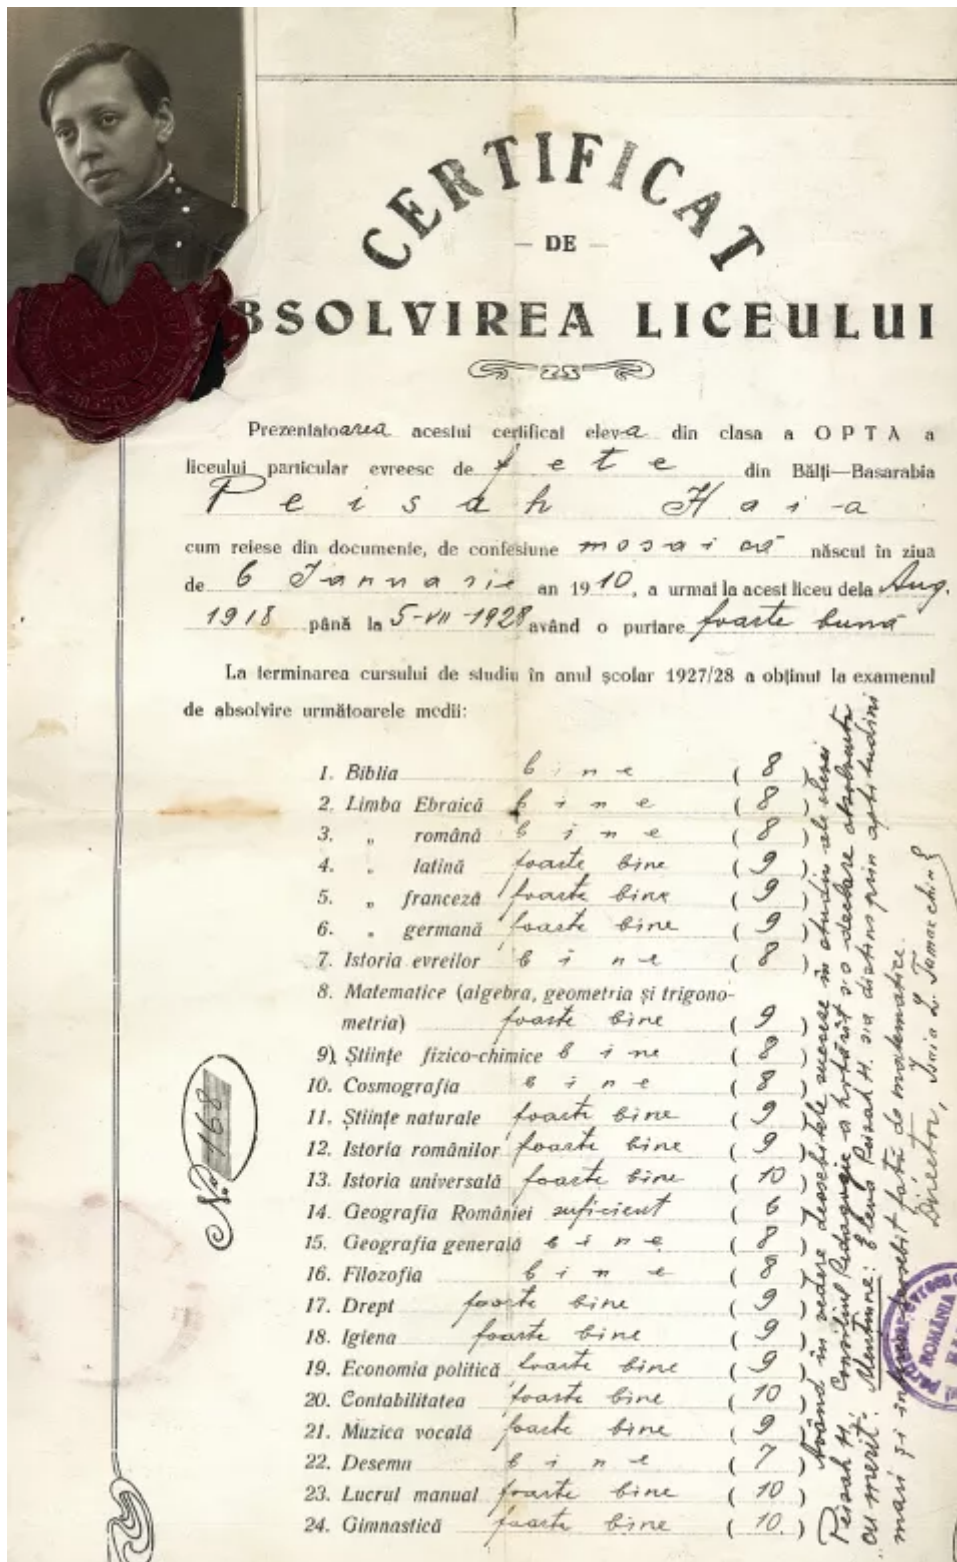 CERTIFICAT
— DE —
BSOLVIREA LICEULUI
Prezentatoarea acestui certificat eleva din clasa a OPTA a
liceului particular evreesc de fete din Bălți—Basarabia
Peisah Haia
cum reiese din documente, de confesiune mosaică născut în ziua
de 6 Ianuarie an 1910, a urmat la acest liceu dela Aug.
1918 până la 5-VII-1928 având o purtare foarte bună
La terminarea cursului de studiu în anul școlar 1927/28 a obținut la examenul
de absolvire următoarele medii:
1. Biblia bine (8)
2. Limba Ebraică bine (8)
3. „ română bine (8)
4. „ latină foarte bine (9)
5. „ franceză foarte bine (9)
6. „ germană foarte bine (9)
7. Istoria evreilor bine (8)
8. Matematice (algebra, geometria și trigono-
metria) foarte bine (9)
9) Științe fizico-chimice bine (8)
10. Cosmografia bine (8)
11. Științe naturale foarte bine (9)
12. Istoria românilor foarte bine (9)
13. Istoria universală foarte bine (10)
14. Geografia României suficient (6)
15. Geografia generală bine (8)
16. Filozofia bine (8)
17. Drept foarte bine (9)
18. Igiena foarte bine (9)
19. Economia politică foarte bine (9)
20. Contabilitatea foarte bine (10)
21. Muzica vocală foarte bine (9)
22. Desemn bine (7)
23. Lucrul manual foarte bine (10)
24. Gimnastică foarte bine (10.)
No. 168
Având în vedere deosebitele succese în studiu ale elevei
Peisah H, Consiliul Pedagogic a hotărît s'o declare absolventă
cu merit. Mențiune: Eleva Peisah H. s'a distins prin aptitudini
mari și deosebit față de matematice.
Director, L. Tamarchin
ROMÂNIA